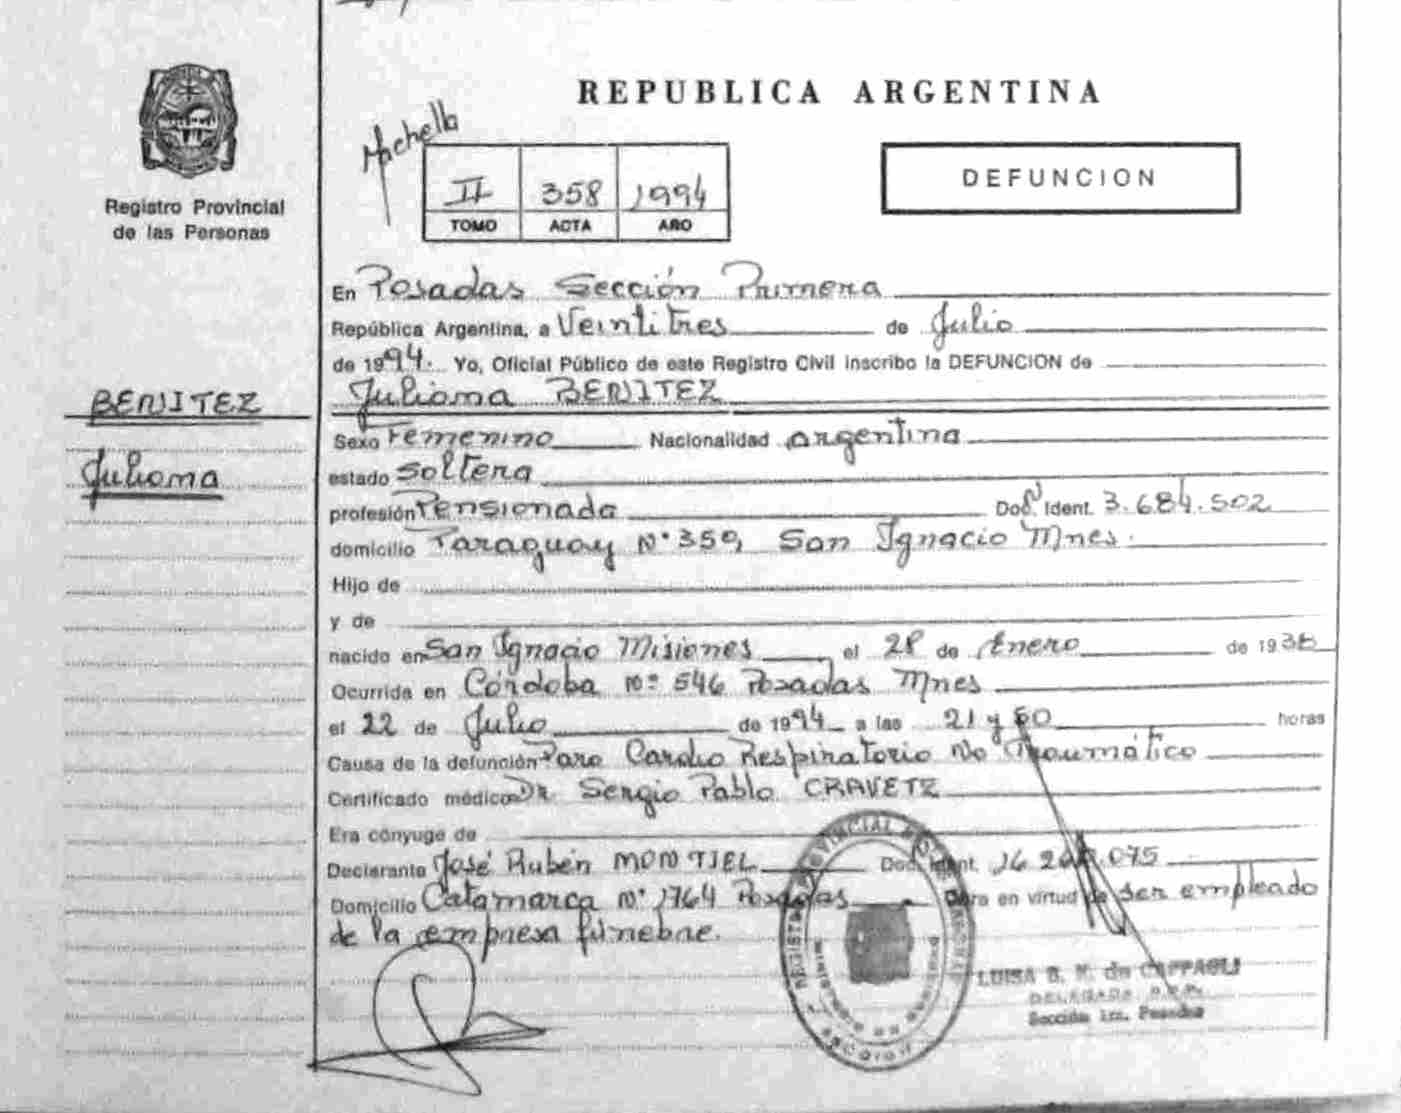 REPUBLICA ARGENTINA
Machella
II 358 1994
TOMO ACTA AÑO
DEFUNCION
Registro Provincial
de las Personas
BENITEZ
Juliana
En Posadas Sección Primera
República Argentina, a Veintitres de Julio
de 1994. Yo, Oficial Público de este Registro Civil inscribo la DEFUNCION de
Juliana BENITEZ
Sexo Femenino Nacionalidad argentina
estado Soltera
profesión Pensionada Doc. Ident. 3.684.502
domicilio Paraguay Nº 359, San Ignacio Mnes.
Hijo de
y de
nacido en San Ignacio Misiones el 28 de Enero de 193
Ocurrida en Córdoba Nº 546 Posadas Mnes
el 22 de Julio de 1994 a las 21 y 50 horas
Causa de la defunción Paro Cardio Respiratorio No Traumático
Certificado médico Dr. Sergio Pablo CRAVETZ
Era cónyuge de
Declarante José Rubén MONTIEL Doc. Ident. 16.2 .075
Domicilio Catamarca Nº 1764 Posadas Obra en virtud de ser empleado
de la empresa fúnebre.
LUISA B. de
DELEGADA
Sección 1ra. Posadas